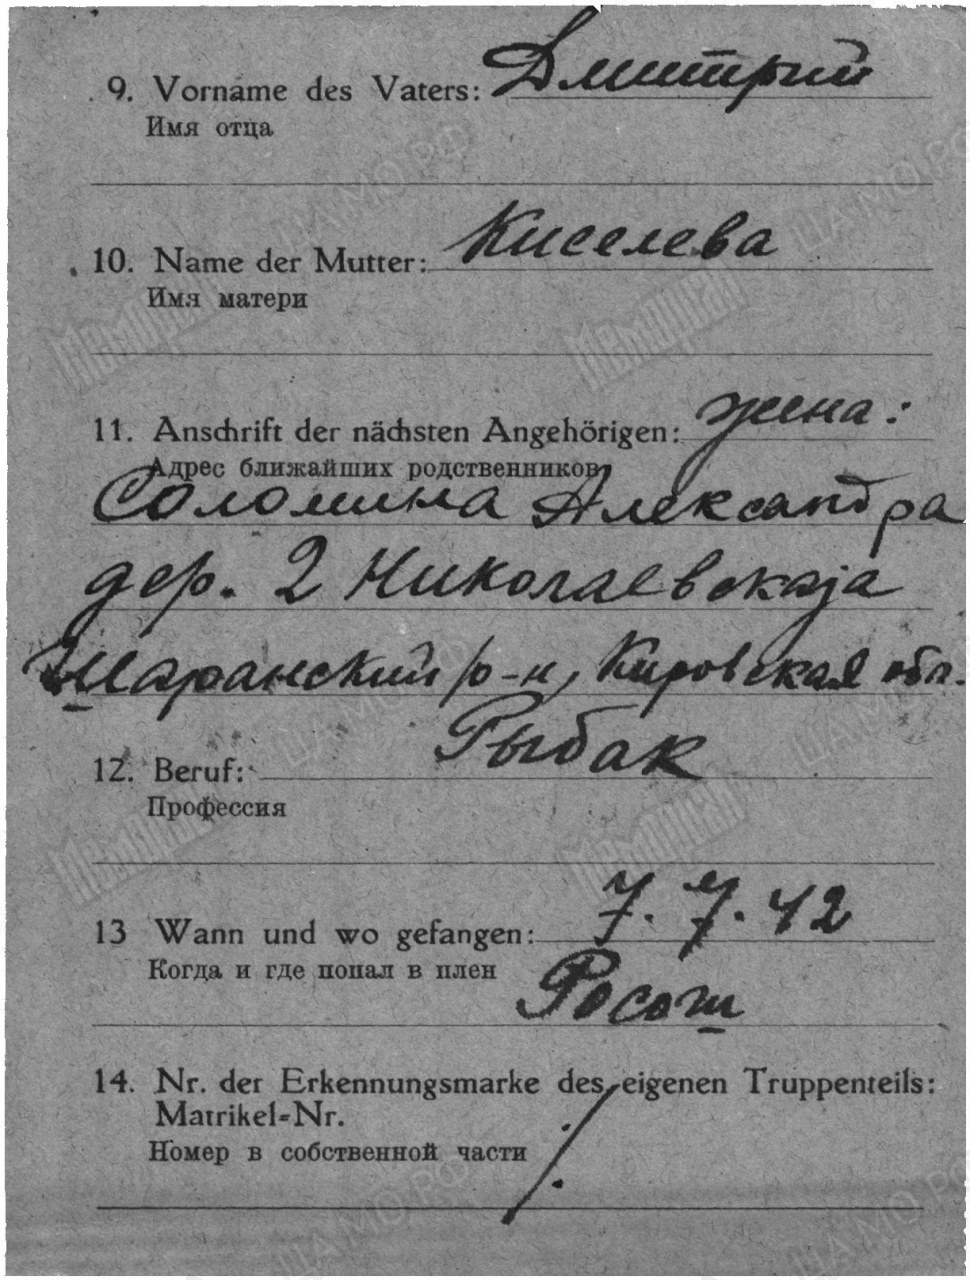 9. Vorname des Vaters: Дмитрий
Имя отца
10. Name der Mutter: Киселева
Имя матери
11. Anschrift der nächsten Angehörigen: жена:
Адрес ближайших родственников
Соломина Александра
дер. 2 Николаевскаjа
Шаранский р-н, Кировская обл.
12. Beruf: Рыбак
Профессия
13 Wann und wo gefangen: 7. 7. 42
Когда и где попал в плен
Росош
14. Nr. der Erkennungsmarke des eigenen Truppenteils:
Matrikel-Nr.
Номер в собственной части